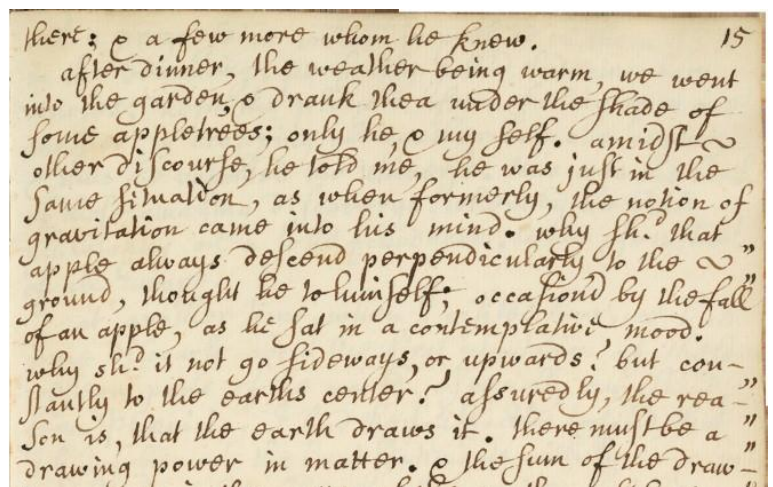 there; & a few more whom he knew. 15
after dinner, the weather being warm, we went
into the garden, & drank thea under the shade of
some appletrees; only he, & my self. amidst ~
other discourse, he told me, he was just in the
same situation, as when formerly, the notion of
gravitation came into his mind. why sh.^d that
apple always descend perpendicularly to the ~ "
ground, thought he to himself; occasion'd by the fall "
of an apple, as he sat in a contemplative mood.
why sh.^d it not go sideways, or upwards? but con-
stantly to the earths center? assuredly, the rea- "
son is, that the earth draws it. there must be a "
drawing power in matter. & the sum of the draw- "